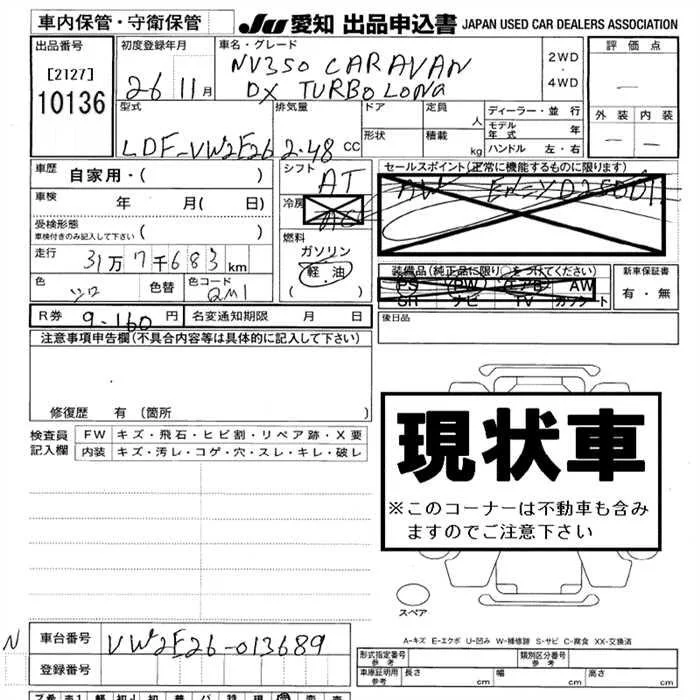 車内保管・守衛保管
JU 愛知 出品申込書 JAPAN USED CAR DEALERS ASSOCIATION
出品番号
[2127]
10136
初度登録年月
26 11月
車名・グレード
NV350 CARAVAN
DX TURBO LONG
2WD
・
4WD
評価点
―
外装 内装
― ―
型式
LDF-VW2E26
排気量
2.48 CC
ドア
形状
定員 人
積載 kg
ディーラー・並行
モデル年式 年
ハンドル 左・右
車歴 自家用・( )
車検 年 月( 日)
受検形態
車検付きのみ記入して下さい ( )
走行 31万7千683km
色 シロ 色替 色コード QM1
シフト
AT
冷房
AC
燃料
ガソリン
軽油
( )
セールスポイント(正常に機能するものに限ります)
AW
装備品(純正品に限り○をつけてください)
PS (PW) エアB AW
SR ナビ TV カセット
新車保証書
有・無
R券 9,160 円 名変通知期限 月 日
後日品
注意事項申告欄(不具合内容等は具体的に記入して下さい)
修復歴 有(箇所 )
検査員
記入欄
FW キズ・飛石・ヒビ割・リペア跡・X要
内装 キズ・汚レ・コゲ・穴・スレ・キレ・破レ
現状車
※このコーナーは不動車も含み
ますのでご注意下さい
スペア
A-キズ E-エクボ U-凹み W-補修跡 S-サビ C-腐食 XX-交換済
N 車台番号 VW2E26-013689
登録番号
形式指定番号 参考
類別区分番号 参考
車庫証明用 参考 長さ cm 幅 cm 高さ cm